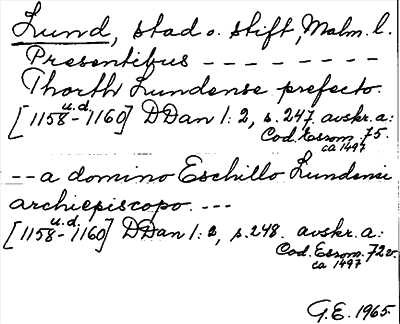 Lund, stad o. stift, Malm. l.
Presentibus - - - - - - - -
Thorth Lundense prefecto.
u.d.
[1158-1160] DDan 1: 2, s. 247. avskr. a:
Cod. Esrom. 75.
ca 1497
-- a domino Eschillo Lundensi
archiepiscopo. ---
u.d.
[1158-1160] DDan 1: 2, s. 248. avskr. a:
Cod. Esrom. 72v.
ca 1497
G.E. 1965.